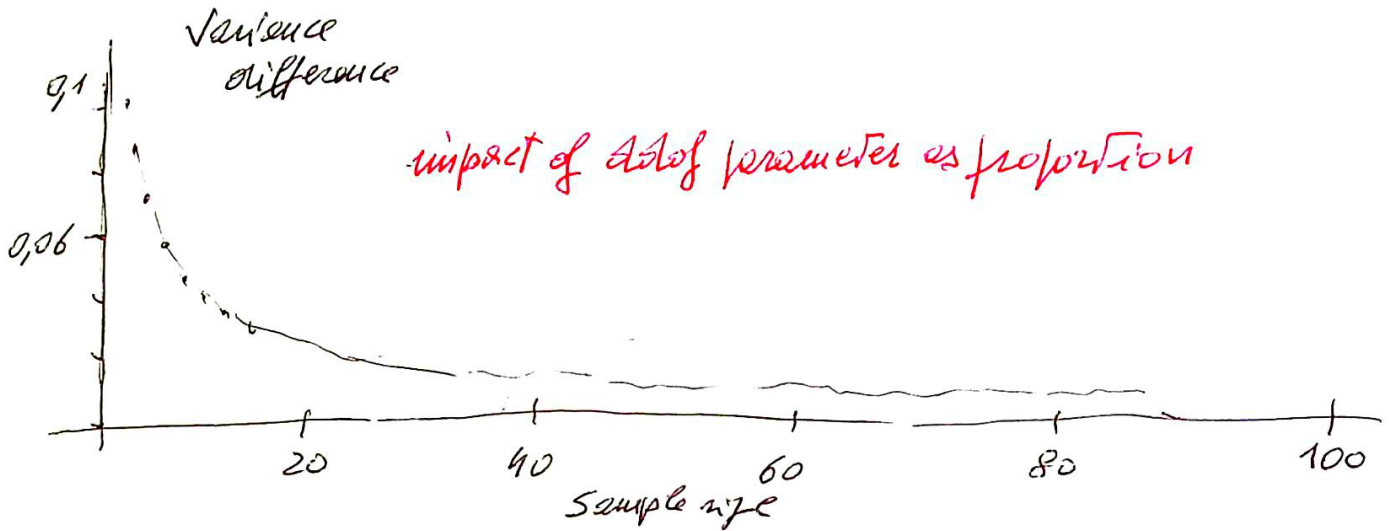 Variance
difference
0,1
impact of ddof parameter as proportion
0,06
20
40
60
80
100
Sample size